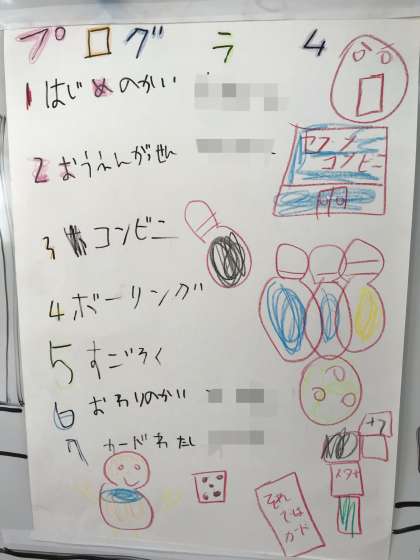 プログラム
1 はじめのかい
2 おうえんがっせん
3 コンビニ
4 ボーリング
5 すごろく
6 おわりのかい
7 カードわたし
コンビニ
それ
では
カード